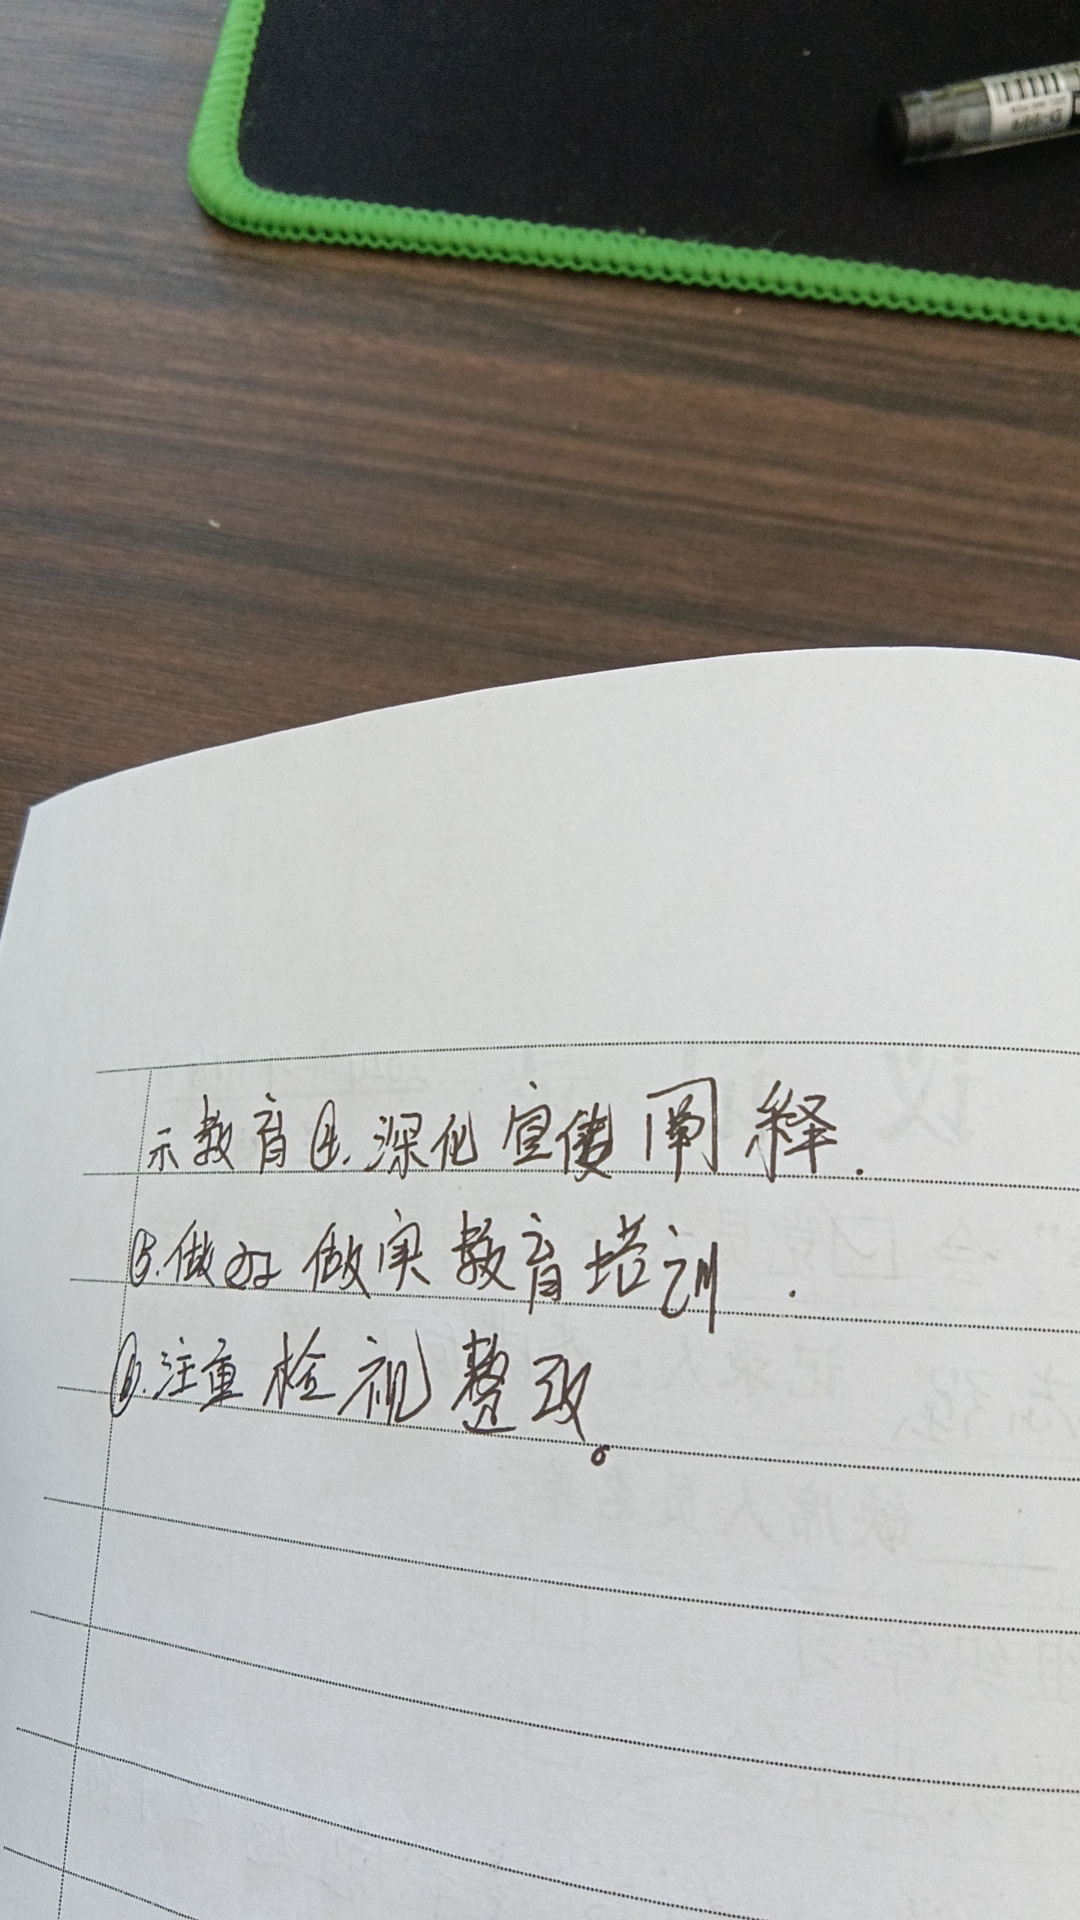 示教育④.深化宣传阐释.
⑤.做好做实教育培训.
⑥.注重检视整改。